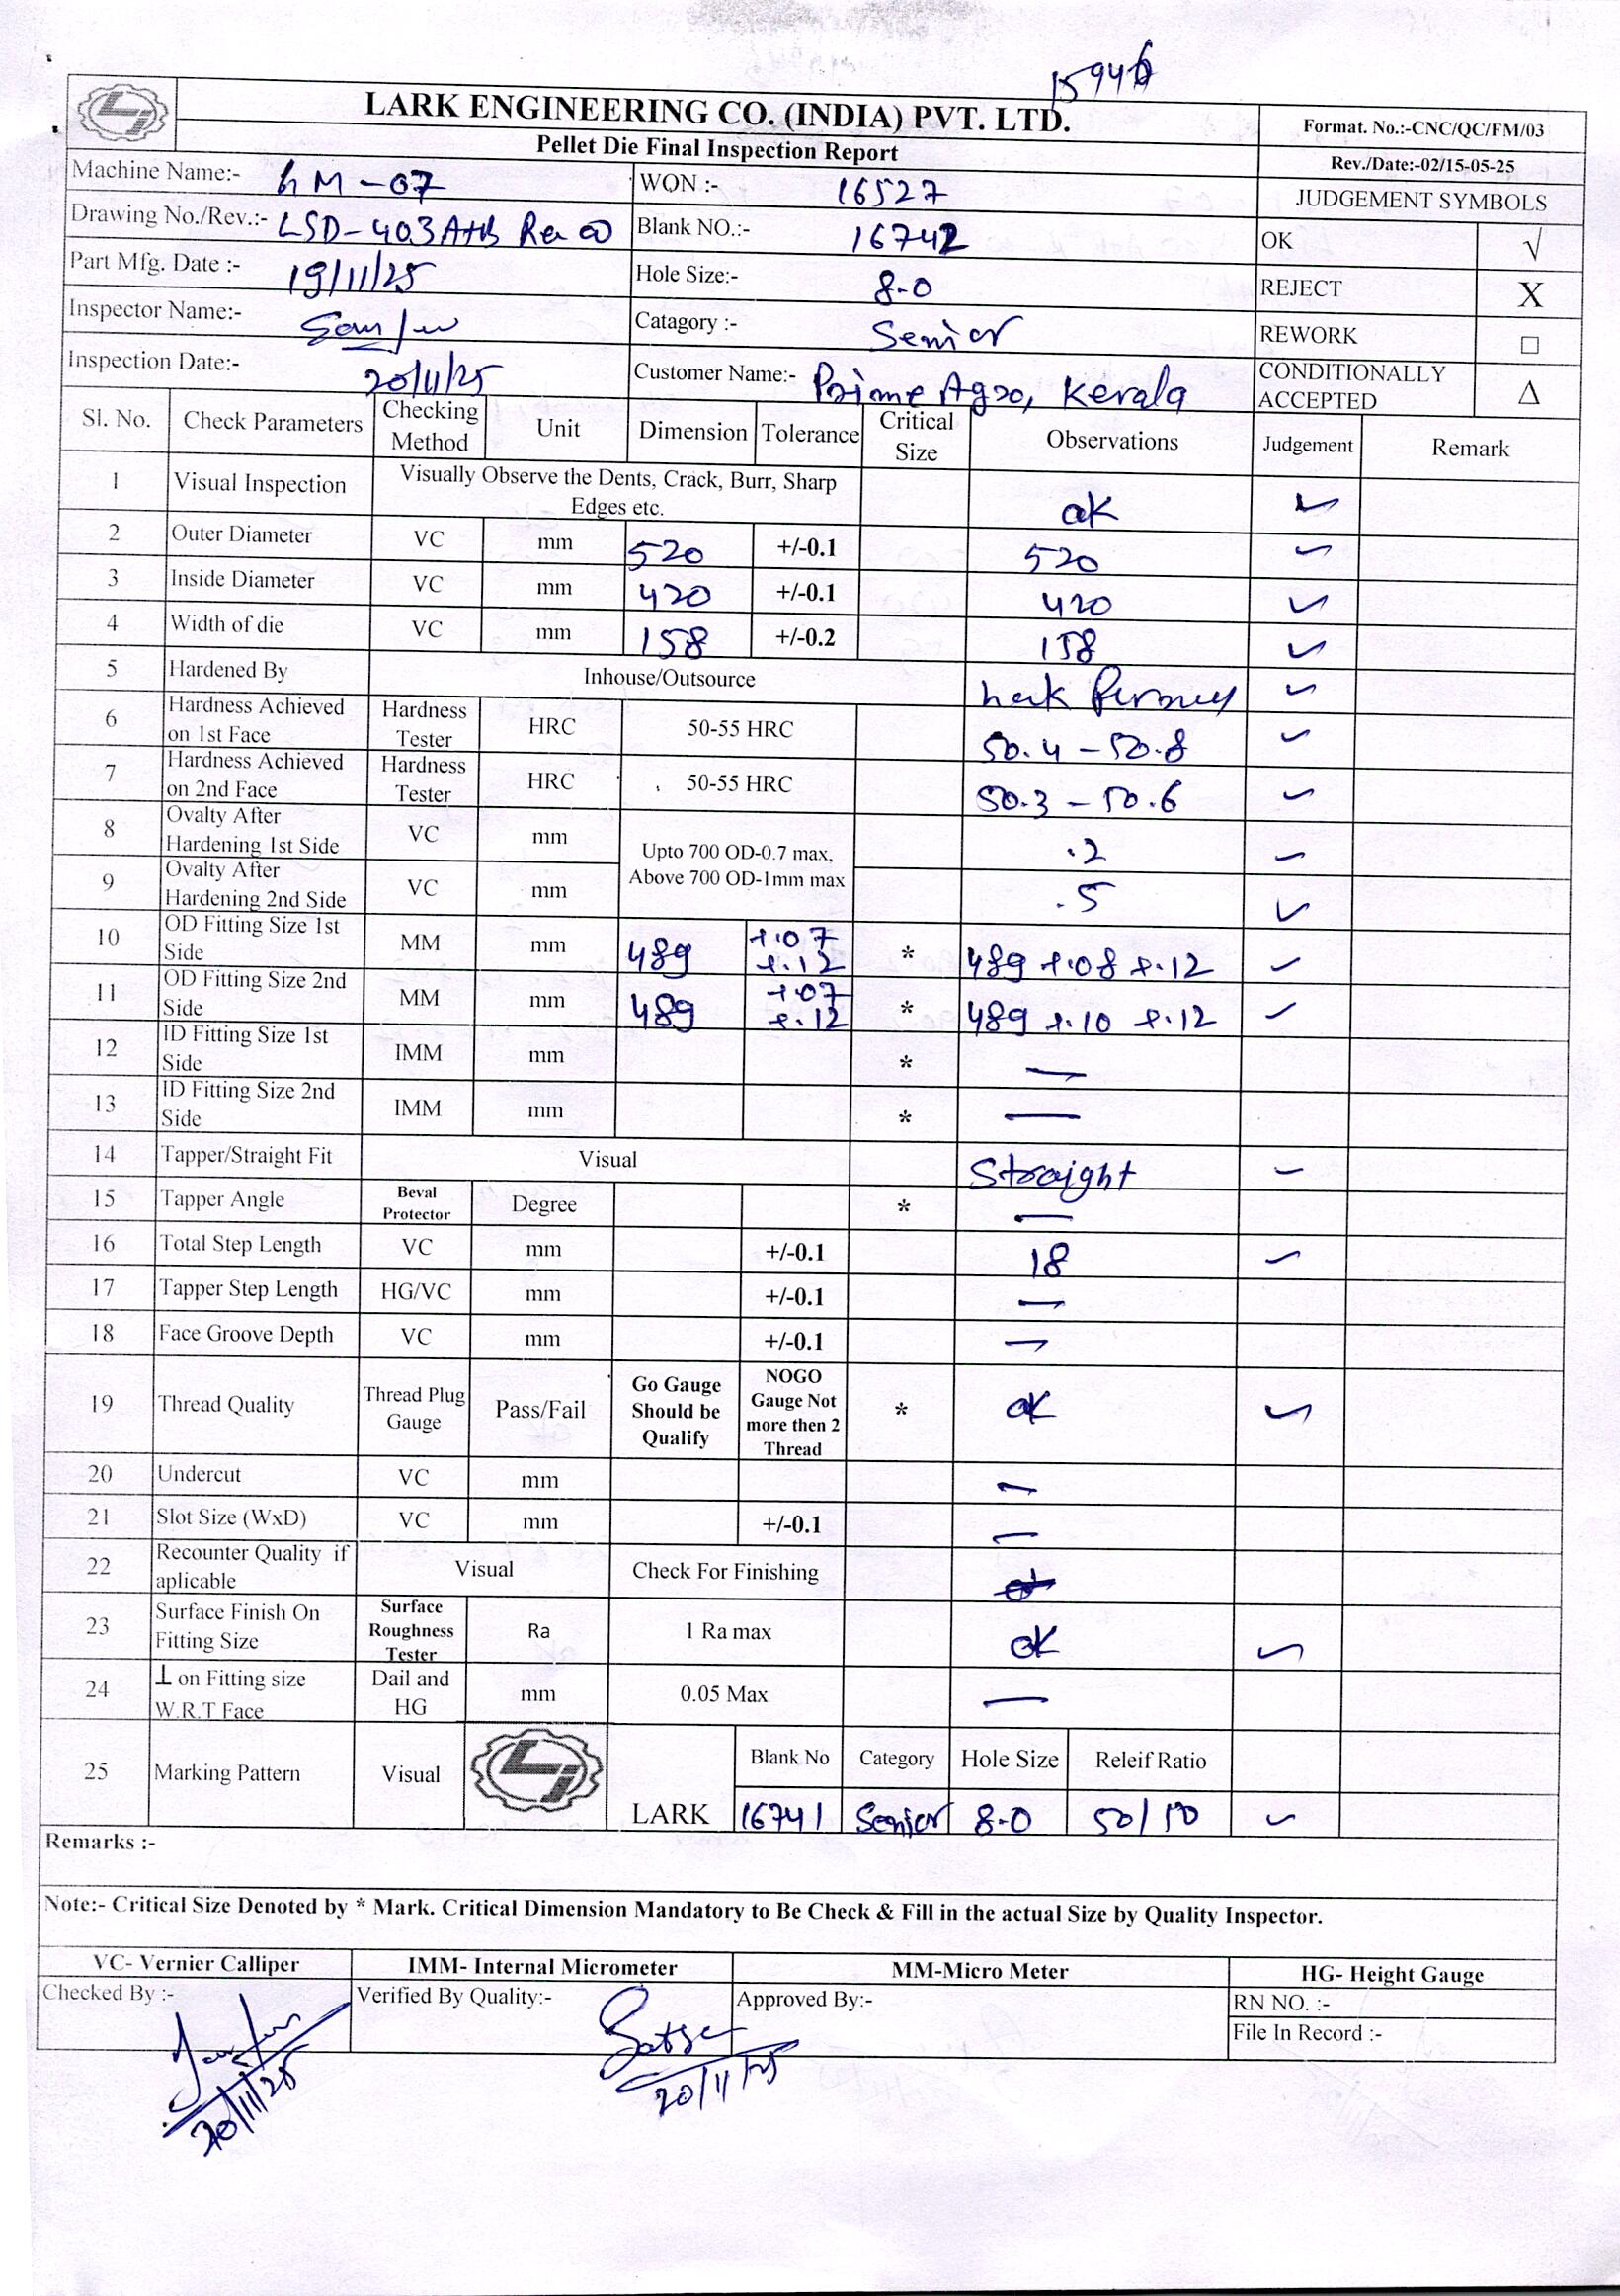 15946
LARK ENGINEERING CO. (INDIA) PVT. LTD.
Pellet Die Final Inspection Report
Format. No.:-CNC/QC/FM/03
Rev./Date:-02/15-05-25
Machine Name:- GM-07 WON :- 16527 JUDGEMENT SYMBOLS
Drawing No./Rev.:- LSD-403A+B Rev 00 Blank NO.:- 16742 OK √
Part Mfg. Date :- 19/11/25 Hole Size:- 8.0 REJECT X
Inspector Name:- Catagory :- Senior REWORK □
Inspection Date:- 20/11/25 Customer Name:- Prime Agro, Kerala CONDITIONALLY ACCEPTED Δ
Sl. No. Check Parameters Checking Method Unit Dimension Tolerance Critical Size Observations Judgement Remark
1 Visual Inspection Visually Observe the Dents, Crack, Burr, Sharp Edges etc. ok ✓
2 Outer Diameter VC mm 520 +/-0.1 520 ✓
3 Inside Diameter VC mm 420 +/-0.1 420 ✓
4 Width of die VC mm 158 +/-0.2 158 ✓
5 Hardened By Inhouse/Outsource ✓
6 Hardness Achieved on 1st Face Hardness Tester HRC 50-55 HRC 50.4 - 50.8 ✓
7 Hardness Achieved on 2nd Face Hardness Tester HRC 50-55 HRC 50.3 - 50.6 ✓
8 Ovalty After Hardening 1st Side VC mm Upto 700 OD-0.7 max, Above 700 OD-1mm max .2 ✓
9 Ovalty After Hardening 2nd Side VC mm .5 ✓
10 OD Fitting Size 1st Side MM mm 489 +.07 +.12 * 489 +.08 +.12 ✓
11 OD Fitting Size 2nd Side MM mm 489 +.07 +.12 * 489 +.10 +.12 ✓
12 ID Fitting Size 1st Side IMM mm * —
13 ID Fitting Size 2nd Side IMM mm * —
14 Tapper/Straight Fit Visual Straight ✓
15 Tapper Angle Beval Protector Degree * —
16 Total Step Length VC mm +/-0.1 18 ✓
17 Tapper Step Length HG/VC mm +/-0.1 —
18 Face Groove Depth VC mm +/-0.1 —
19 Thread Quality Thread Plug Gauge Pass/Fail Go Gauge Should be Qualify NOGO Gauge Not more then 2 Thread * ok ✓
20 Undercut VC mm —
21 Slot Size (WxD) VC mm +/-0.1 —
22 Recounter Quality if aplicable Visual Check For Finishing
23 Surface Finish On Fitting Size Surface Roughness Tester Ra 1 Ra max ok ✓
24 ⊥ on Fitting size W.R.T Face Dail and HG mm 0.05 Max —
25 Marking Pattern Visual LARK Blank No Category Hole Size Releif Ratio
16741 Senior 8.0 50/50 ✓
Remarks :-
Note:- Critical Size Denoted by * Mark. Critical Dimension Mandatory to Be Check & Fill in the actual Size by Quality Inspector.
VC- Vernier Calliper IMM- Internal Micrometer MM-Micro Meter HG- Height Gauge
Checked By :- Verified By Quality:- Approved By:- RN NO. :-
File In Record :-
20/11/25 20/11/25